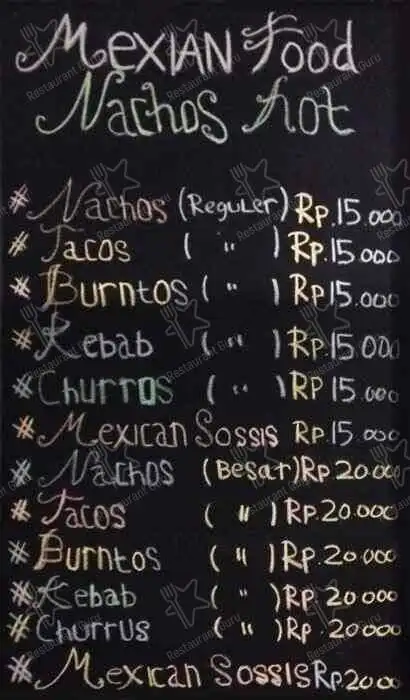 Mexian Food
Nachos hot
# Nachos (Reguler) Rp.15.000
# Tacos ( " ) Rp.15.000
# Burntos ( " ) Rp15.000
# Kebab ( " ) Rp.15 000
# Churros ( " ) Rp 15.000
# Mexican Sossis Rp.15.000
# Nachos (Besar) Rp 20.000
# Tacos ( " ) Rp.20.000
# Burntos ( " ) Rp.20 000
# Kebab ( " ) Rp.20.000
# Churrus ( " ) Rp.20.000
# Mexican Sossis Rp20.00
Restaurant Guru